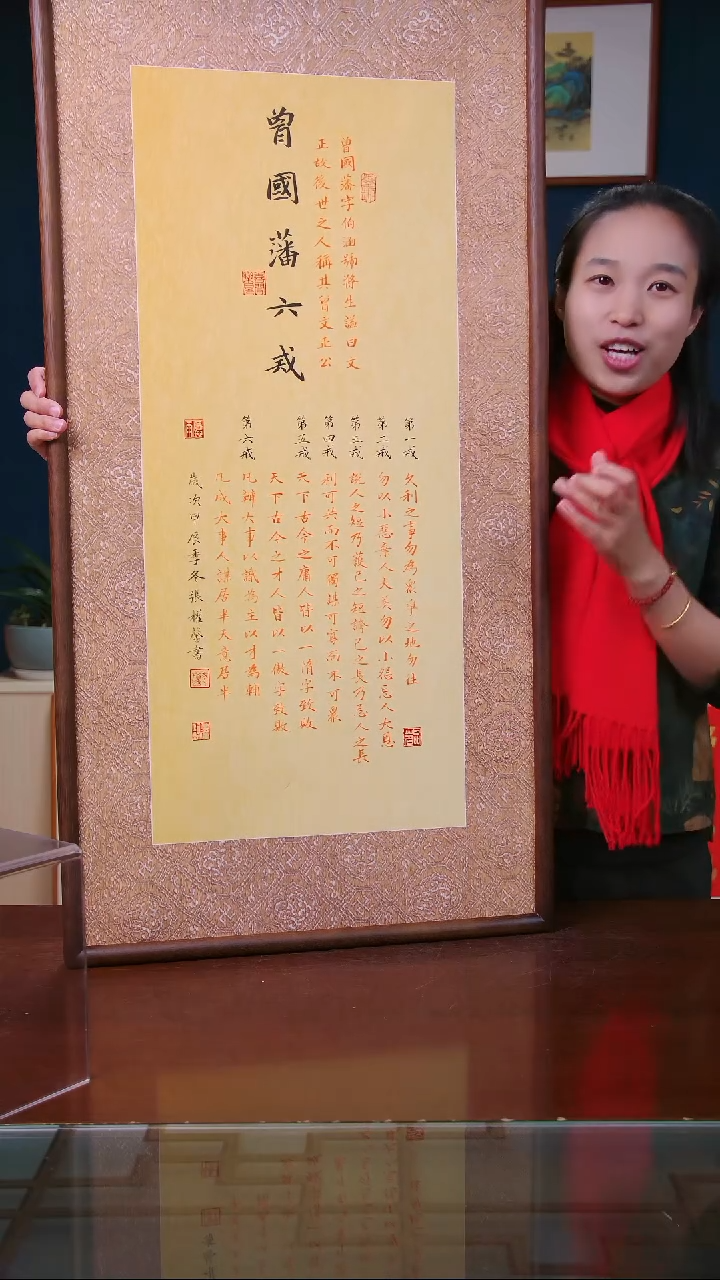 曾國藩六戒
曾國藩字伯涵號滌生諡曰文
正故後世之人稱其曾文正公
第一戒
久利之事勿為眾爭之地勿往
第二戒
勿以小惡棄人大美勿以小怨忘人大恩
第三戒
說人之短乃護己之短誇己之長乃忌人之長
第四戒
利可共而不可獨謀可寡而不可眾
第五戒
天下古今之庸人皆以一惰字致敗
天下古今之才人皆以一傲字致敗
第六戒
凡辦大事以識為主以才為輔
凡成大事人謀居半天意居半
歲次甲辰季冬張
書